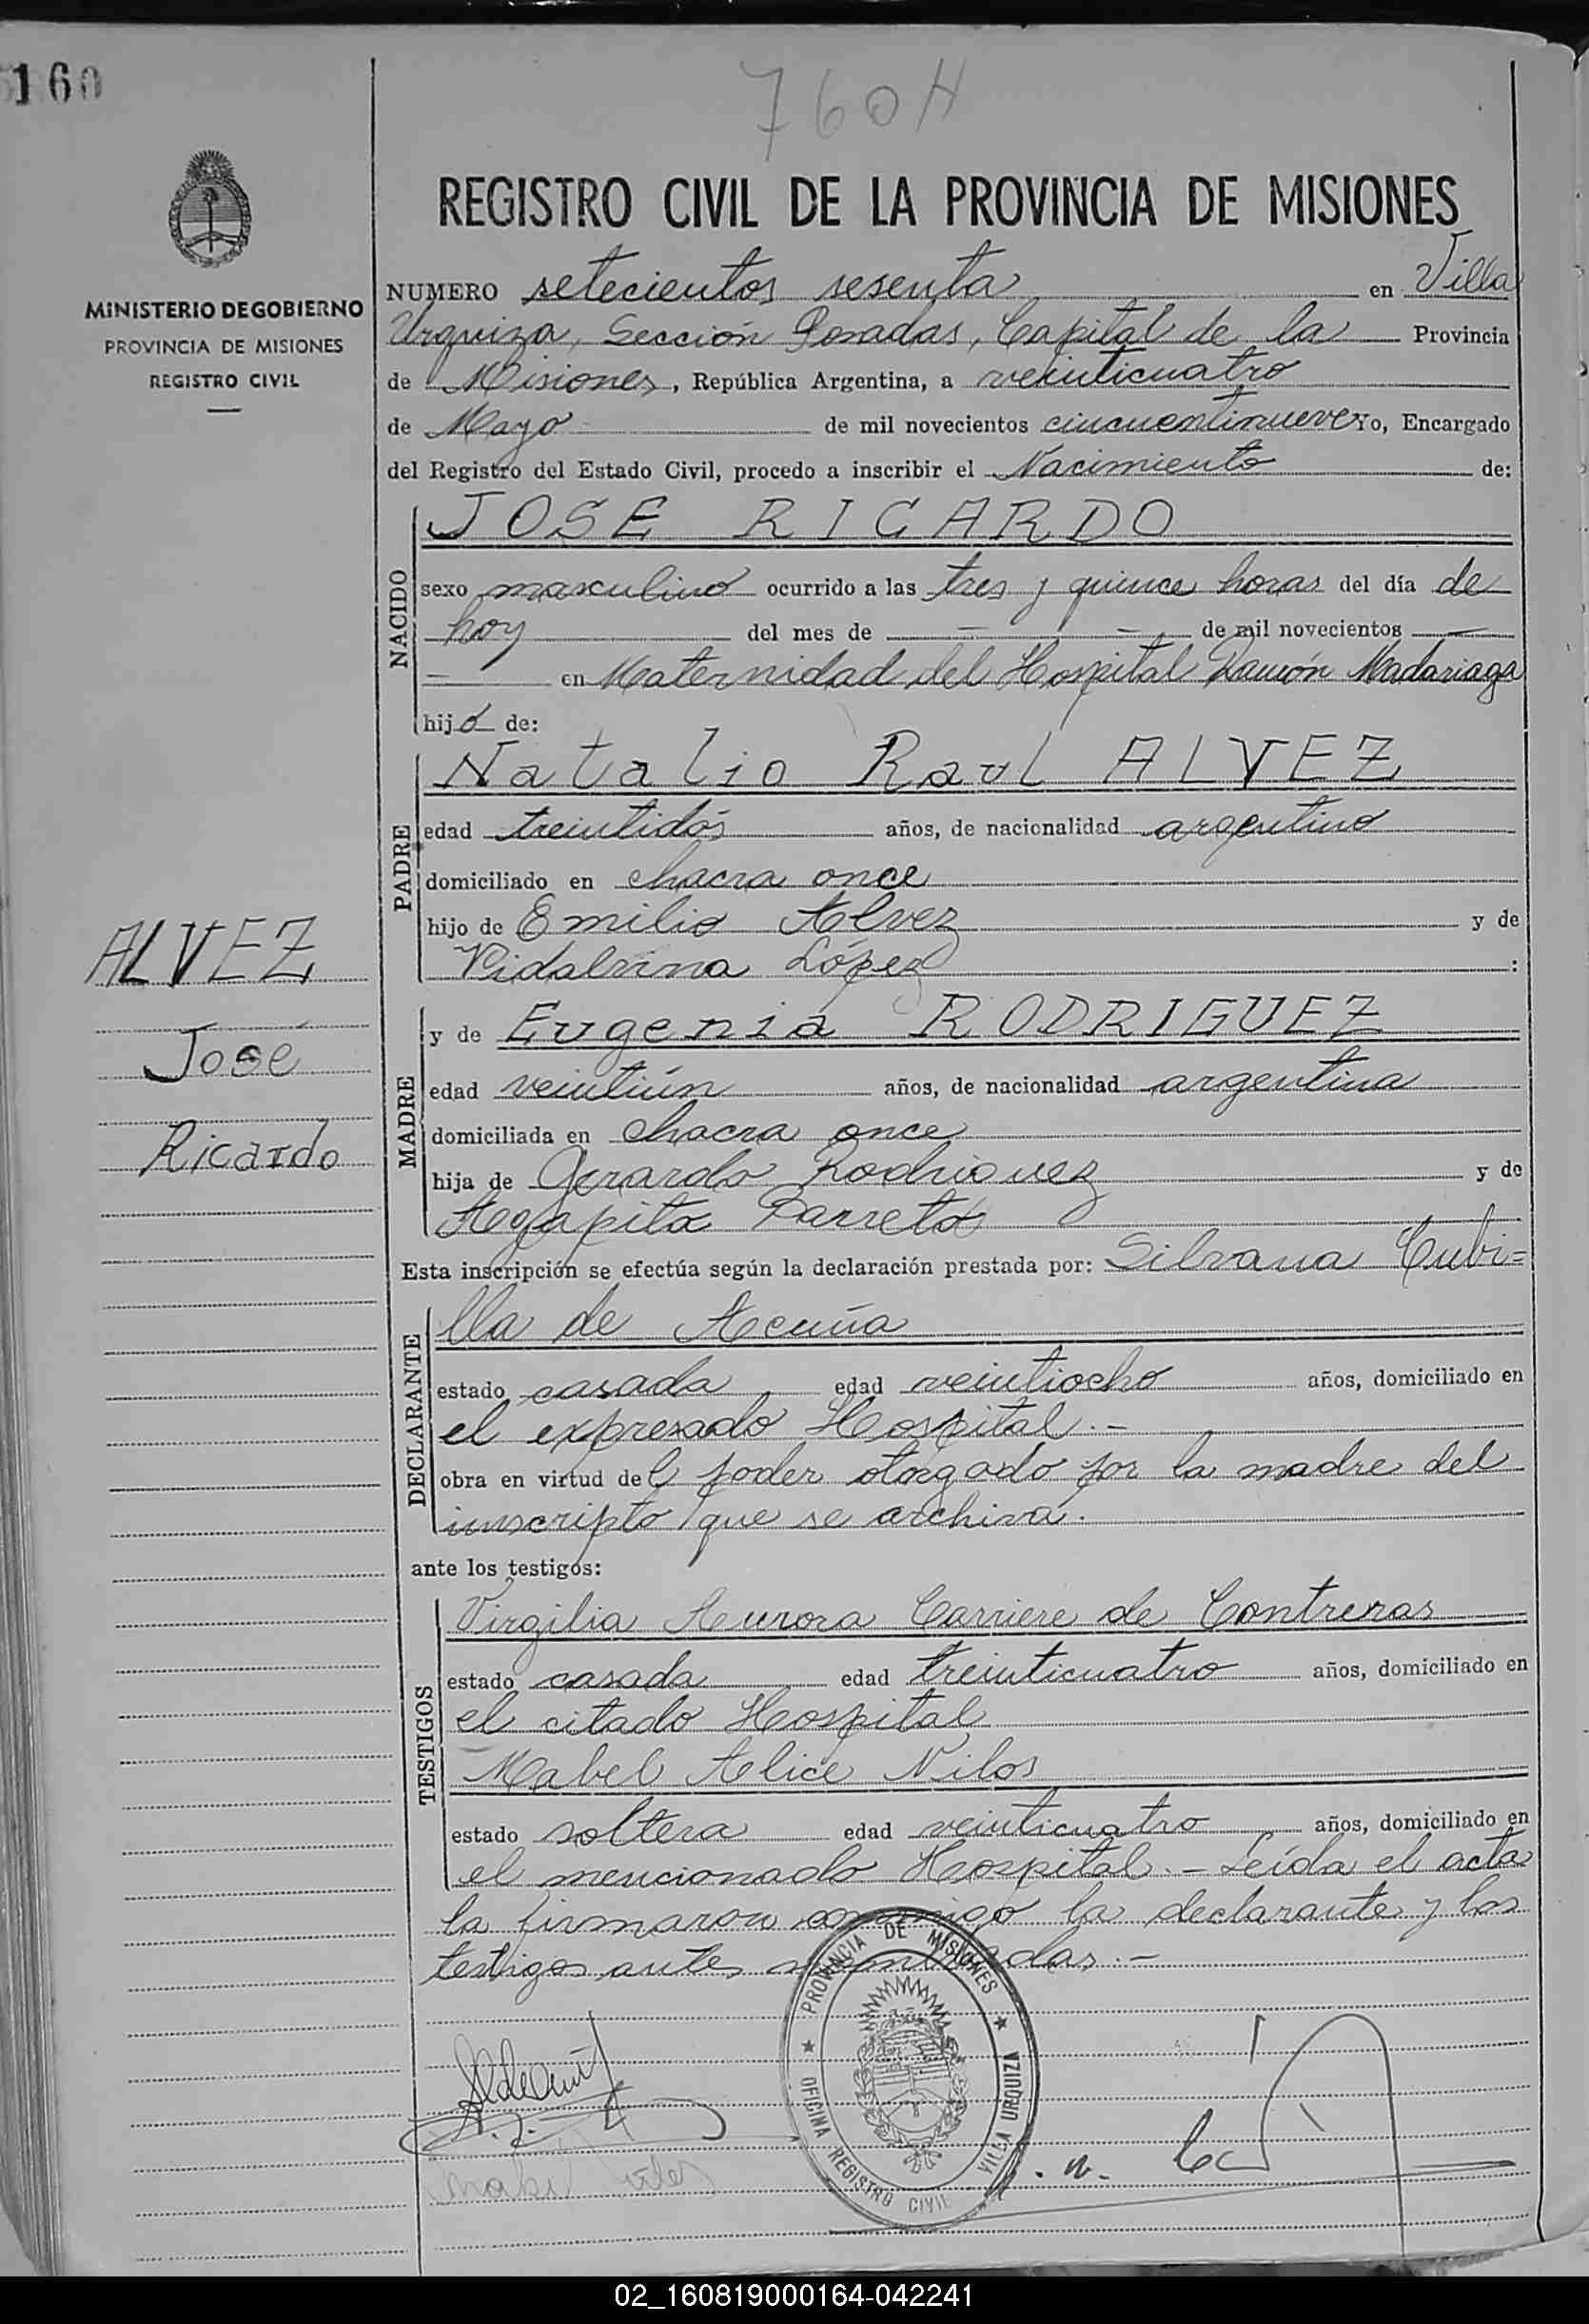 160
760H
REGISTRO CIVIL DE LA PROVINCIA DE MISIONES
MINISTERIO DE GOBIERNO
PROVINCIA DE MISIONES
REGISTRO CIVIL
NUMERO setecientos sesenta en Villa
Urquiza, Sección Posadas, Capital de la Provincia
de Misiones, República Argentina, a veinticuatro
de Mayo de mil novecientos cincuentinueve Yo, Encargado
del Registro del Estado Civil, procedo a inscribir el Nacimiento de:
NACIDO
JOSE RICARDO
sexo masculino ocurrido a las tres y quince horas del día de
hoy del mes de — — de mil novecientos —
— en Maternidad del Hospital Ramón Madariaga
hijo de:
PADRE
Natalio Raul ALVEZ
edad treintidós años, de nacionalidad argentino
domiciliado en chacra once
hijo de Emilio Alvez y de
Vidalvina López :
ALVEZ
José
Ricardo
MADRE
y de Eugenia RODRIGUEZ
edad veintiún años, de nacionalidad argentina
domiciliada en chacra once
hija de Gerardo Rodriguez y de
Agapita Barreto
Esta inscripción se efectúa según la declaración prestada por: Silvana Cubi=
DECLARANTE
lla de Acuña
estado casada edad veintiocho años, domiciliado en
el expresado Hospital.-
obra en virtud del poder otorgado por la madre del
inscripto que se archiva.
ante los testigos:
TESTIGOS
Virgilia Aurora Carriere de Contreras
estado casada edad treinticuatro años, domiciliado en
el citado Hospital
Mabel Alice Nilos
estado soltera edad veinticuatro años, domiciliado en
el mencionado Hospital.- Leída el acta
la firmaron conmigo la declarante y los
testigos antes nombradas.-
PROVINCIA DE MISIONES
OFICINA REGISTRO CIVIL VILLA URQUIZA
02_160819000164-042241